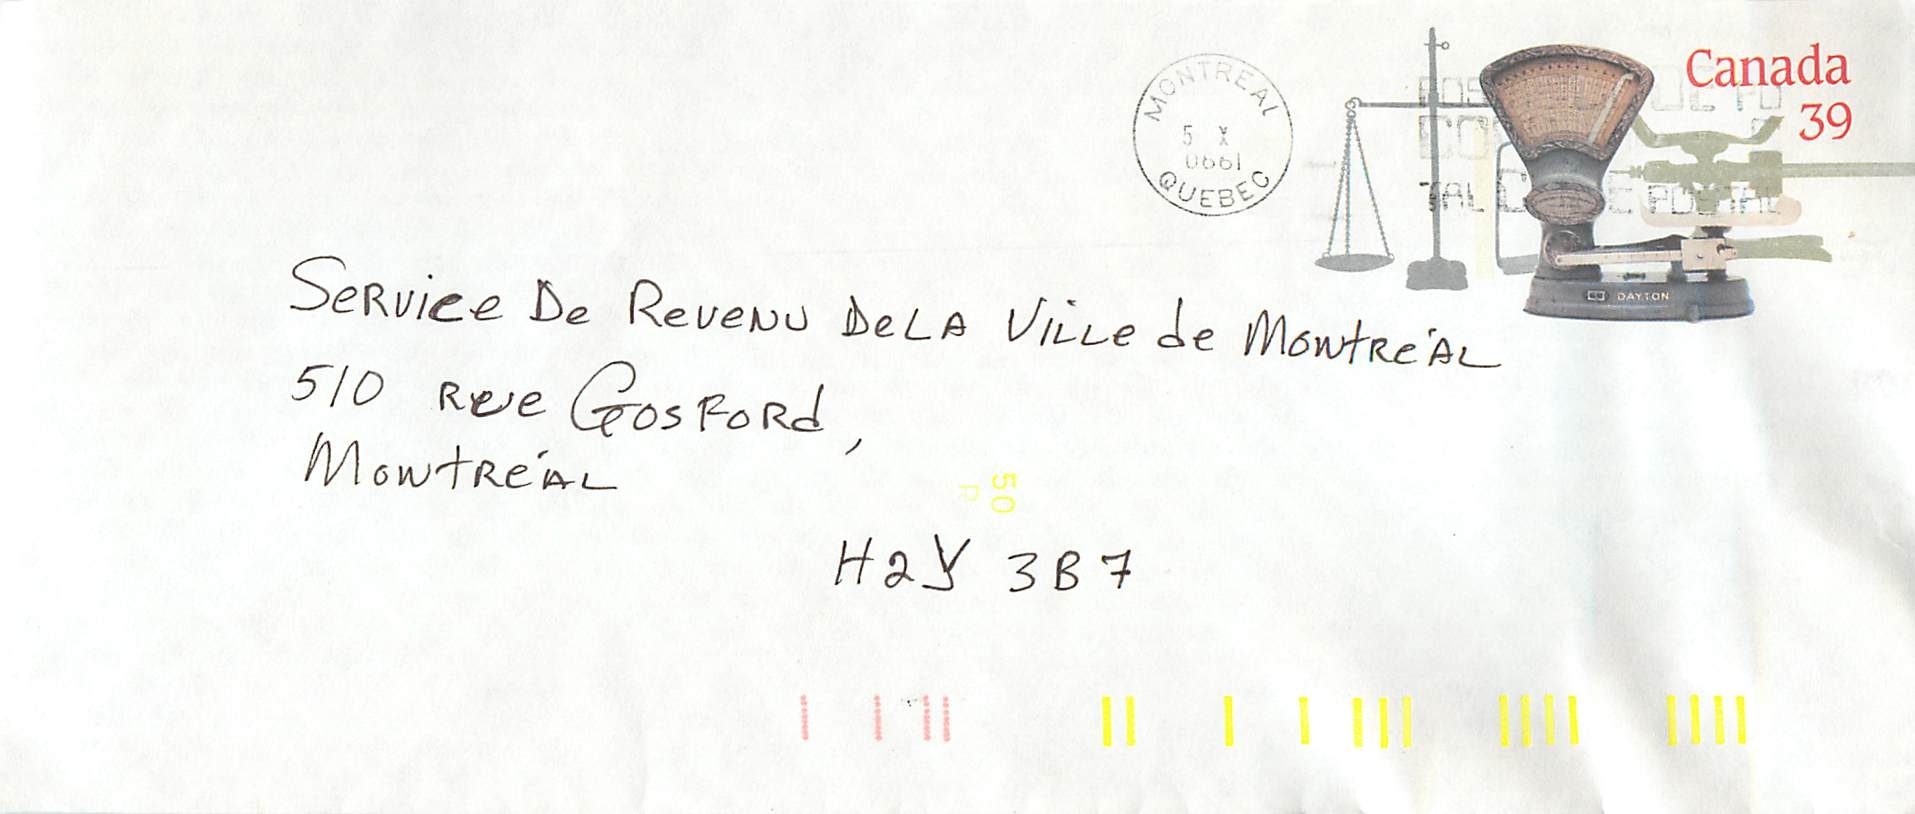 MONTREAL
5 X
0661
QUEBEC
Canada
39
DAYTON
SERVICE DE REVENU DE LA VILLE de MONTRÉAL
510 RUE GOSFORD,
MONTRÉAL
50
P
H2Y 3B7